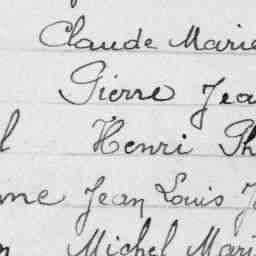 Claude Marie
Pierre Jea
l Henri Ph
nne Jean Louis J
n Michel Mari